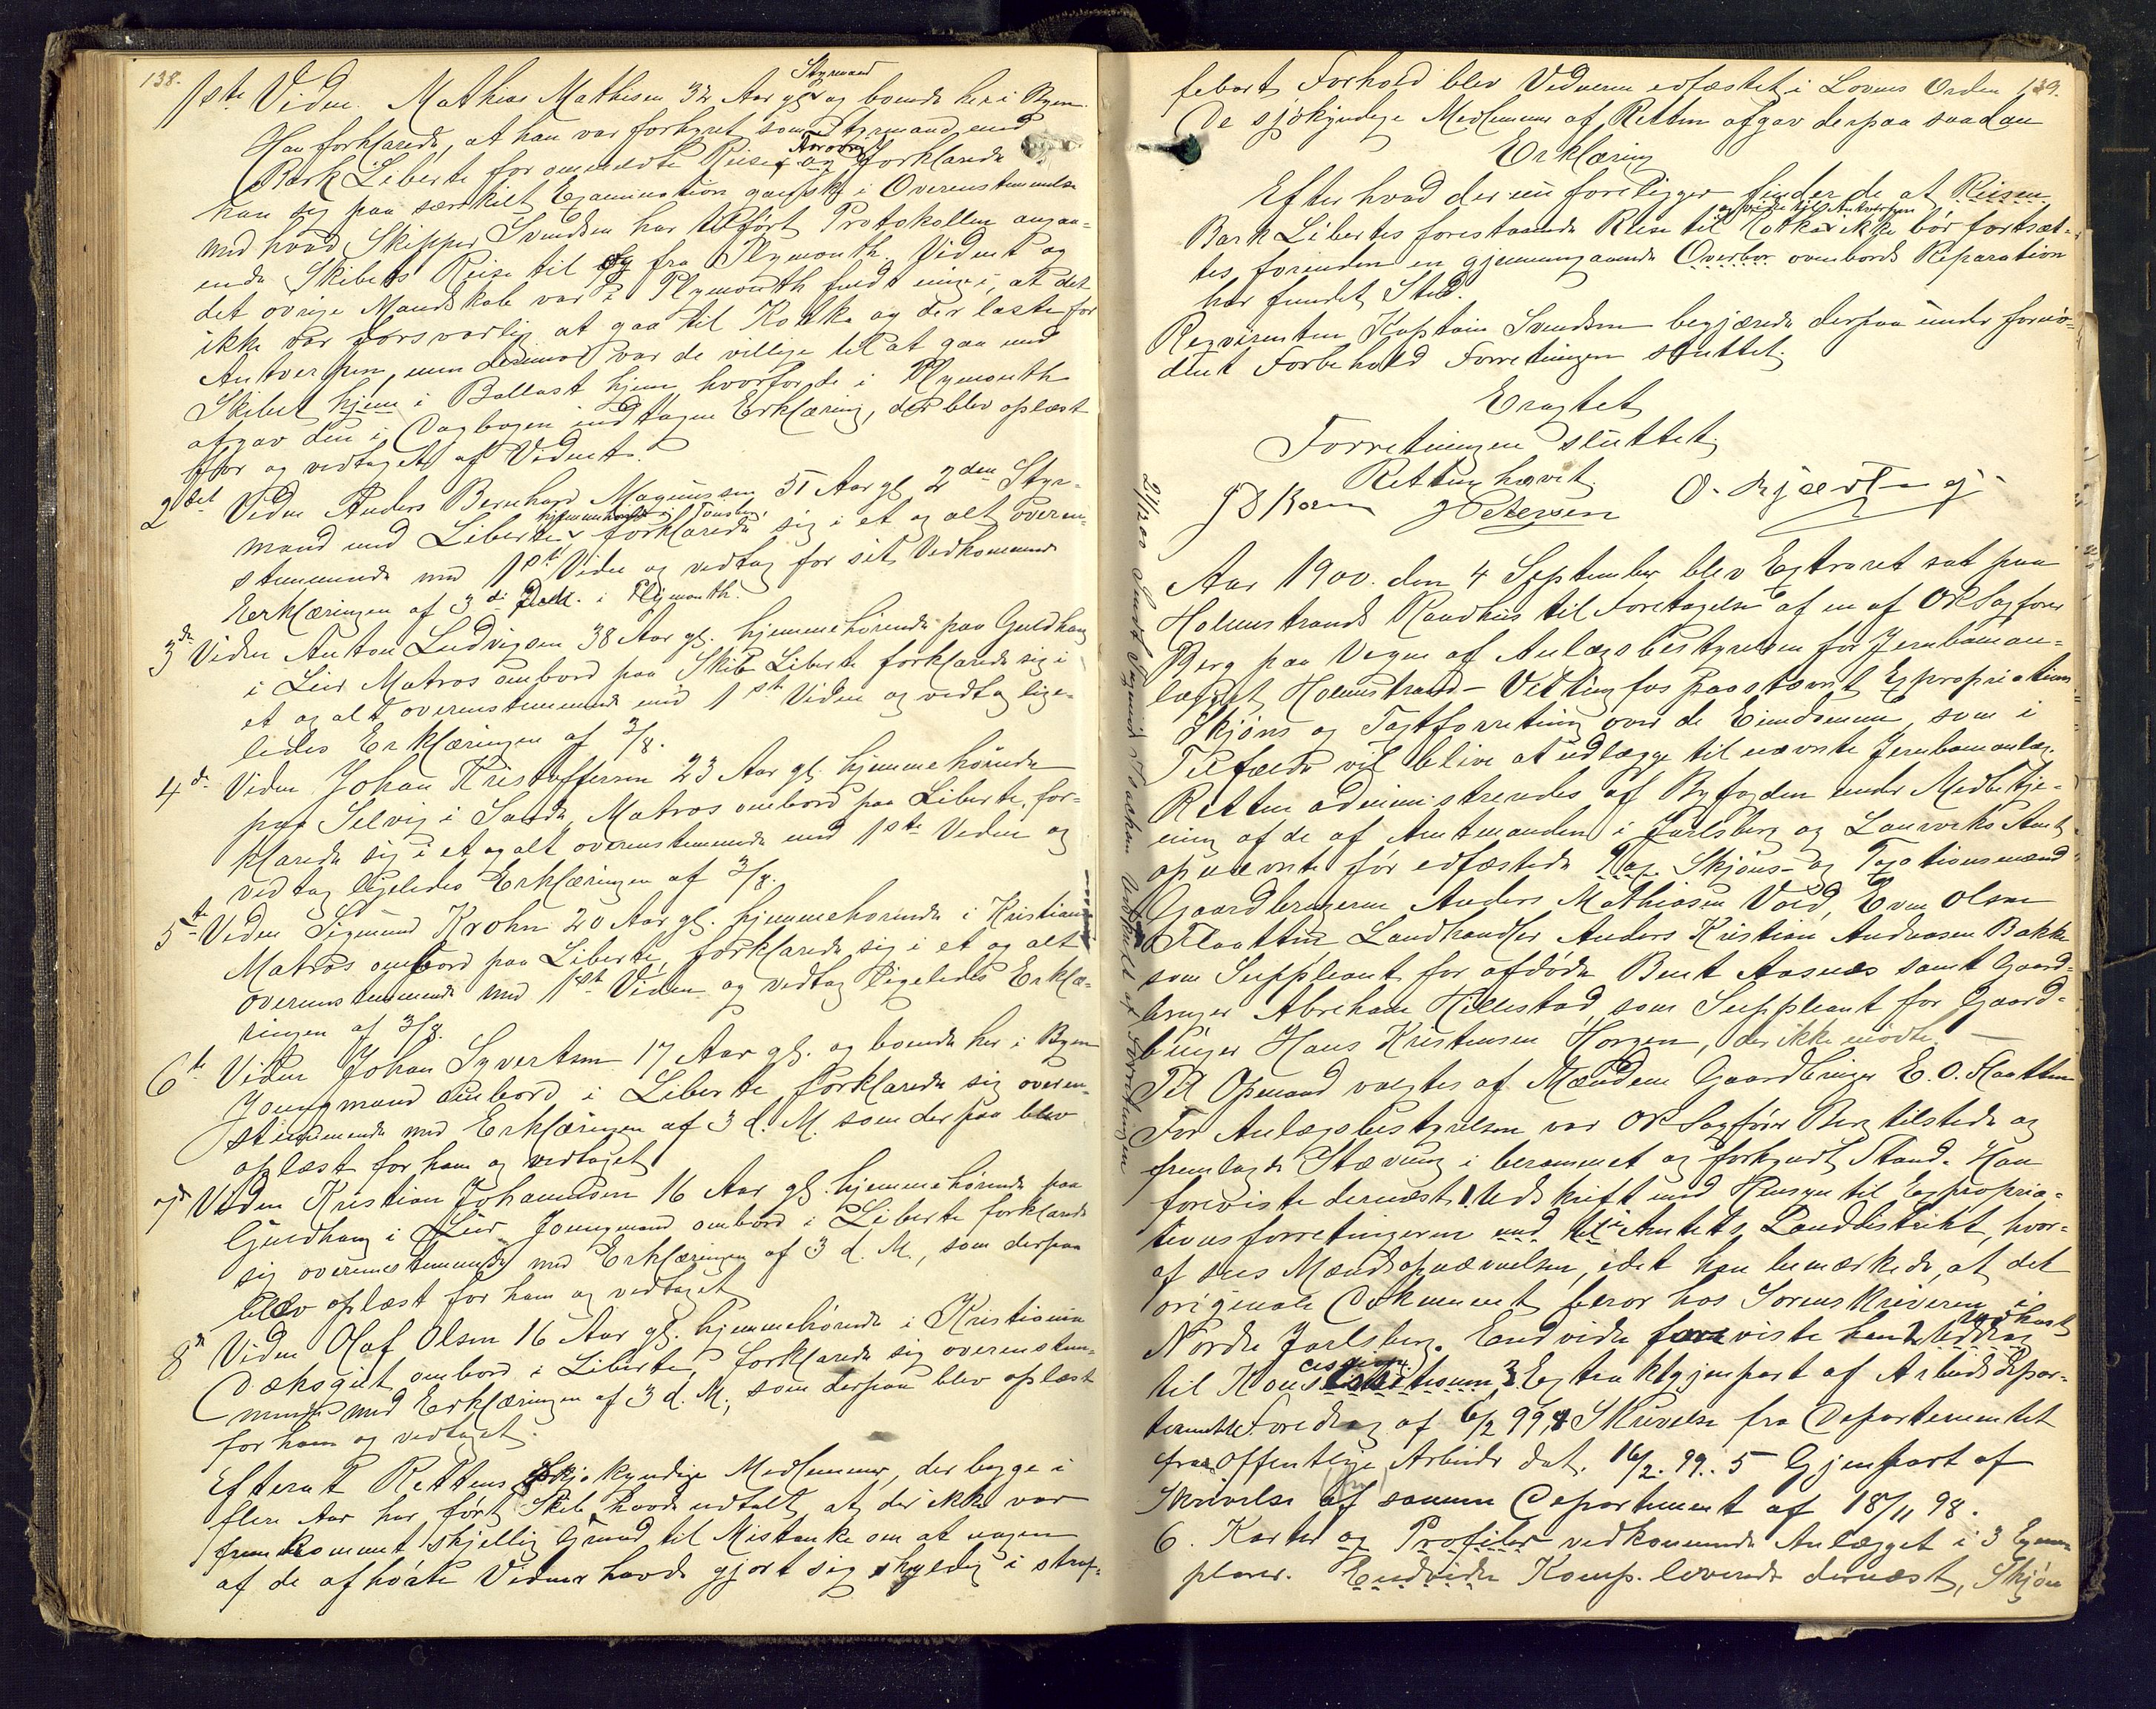 138.
Styrmand
1ste Vidne. Mathias Mathisen 32 Aar gl. og boende her i Byen.
Han forklarede, at han var forhyret som Styrmand med
Bark Liberte for omhandlede Reise, og forklarede
han sig paa særskilt Examination ganske i Overensstemmelse
med hvad Skipper Svendsen har tilført Protokollen angaa-
ende Skibets Reise til og fra Plymouth. Vidnet og
det øvrige Mandskab var i Plymouth fuldt enige i, at det
ikke var forsvarlig at gaa til Kotka og der laste for
Antverpen, men derimod var de villige til at gaa med
Skibet hjem i Ballast hjem hvorfor de i Plymouth
afgav den i Dagbogen indtagne Erklæring, der blev oplæst
for og vedtaget af Vidnet.
2det Vidne Anders Bernhard Magnussen 51 Aar gl. 2den Styr-
hjemmehørende i Tønsberg,
mand med Liberte, forklarede sig i et og alt overens-
stemmende med 1ste Vidne og vedtog for sit Vedkommende
Erklæringen af 3de i Plymouth.
3de Vidne Anton Ludvigsen 38 Aar gl. hjemmehørende paa Guldhaug
i Lier Matros ombord paa Skib Liberte forklarede sig i
et og alt overensstemmende med 1ste Vidne og vedtog lige-
ledes Erklæringen af 3/8.
4de Vidne Johan Kristoffersen 23 Aar gl. hjemmehørende
paa Selvig i Sande, Matros ombord paa Liberte, for-
klarede sig i et og alt overensstemmende med 1ste Vidne og
vedtog ligeledes Erklæringen af 3/8.
5te Vidne Sigmund Krohn 20 Aar gl. hjemmehørende i Kristiania
Matros ombord paa Liberte, forklarede sig i et og alt
overensstemmende med 1ste Vidne og vedtog ligeledes Erklæ-
ringen af 3/8.
6te Vidne Johan Syvertsen 17 Aar gl. og boende her i Byen
Jungmand ombord i Liberte forklarede sig overens-
stemmende med Erklæringen af 3 d. M. som derpaa blev
oplæst for ham og vedtaget
7de Vidne Kristian Johannesen 16 Aar gl. hjemmehørende paa
Guldhaug i Lier Jungmand ombord i Liberte forklarede
sig overensstemmende med Erklæringen af 3 d. M., som derpaa
blev oplæst for ham og vedtaget
8de Vidne Olaf Olsen 16 Aar gl. hjemmehørende i Kristiania
Dæksgut ombord i Liberte, forklarede sig overensstem-
mende med Erklæringen af 3 d. M., som derpaa blev oplæst
for ham og vedtaget.
Efterat Rettens søkyndige Medlemmer, der begge i
flere Aar har ført Skib havde udtalt at der ikke var
fremkommet skjellig Grund til Mistanke om at nogen
af de afhørte Vidner havde gjort sig skyldig i straf-
139.
febart Forhold blev Vidnerne edfæstet i Lovens Orden
De sjøkyndige Medlemmer af Retten afgav derpaa saadan
Erklæring
Efter hvad der nu foreligger finder de at Reisen
og videre til Antverpen
Bark Libertes forestaaende Reise til Kotka ikke bør fortsæt-
tes, forinden en gjennemgaaende Overbor ovenbords Reparation
har fundet Sted.
Reqvirenten Kaptein Svendsen begjærede derpaa under fornø-
dent Forbehold Forretningen sluttet.
Eragtet
Forretningen sluttet
Retten hævet.
J Petersen
Aar 1900. den 4 September blev Extraret sat paa
Holmestrands Raadhus til Foretagelse af en af ORSagfører
Berg paa Vegne af Anlægsbestyrelsen for Jernbanean-
lægget Holmestrand-Vittingfos paastævnt Expropriations
Skjøns og Taxtforretning over de Eiendomme, som i
Tilfælde vil blive at udlægge til nævnte Jernbaneanlæg.
Retten administreredes af Byfogden under Medbetje-
ning af de af Amtmanden i Jarlsberg og Laurviks Amt
opnævnte før edfæstede Tax Skjøns- og Taxationsmænd
Gaardbrugerne Anders Mathiasen Vold, Even Olsen
Flaatten Landhandler Anders Kristian Andreasen Bakke
som Suppleant for afdøde Bent Aasnæs samt Gaard-
bruger Abraham Hillestad, som Suppleant for Gaard-
bruger Hans Kristensen Horgen, der ikke mødte. —
Til Opmand valgtes af Mændene Gaardbruger E. O. Flaatten
For Anlægsbestyrelsen var ORSagfører Berg tilstede og
fremlagde Stævning i berammet og forkyndt Stand. Han
foreviste dernæst 1. Udskrift med Hensyn til Expropria-
tionsforretningerne med til i Amtets Landdistrikt, hvor-
af sees Mændsopnævnelsen, idet han bemærkede, at det
originale Dokument beror hos Sorenskriveren i
Nordre Jarlsberg. Endvidere foreviste han 2. Udkast
cession
til Kons 3. Extraktgjenpart af Arbeidsdepar-
tementets Foredrag af 6/2 99, 4 Skrivelse fra Departementet
for offentlige Arbeider dat. 16/2. 99.. 5 Gjenpart af
Skrivelse af samme Departement af 18/11 98.
6. Karter og Profiler vedkommende Anlægget i 3 Exem-
plarer. Endvidere Komp. leverede dernæst, Skjøn
21/12 00 Sendt Udskrift af Forretningen